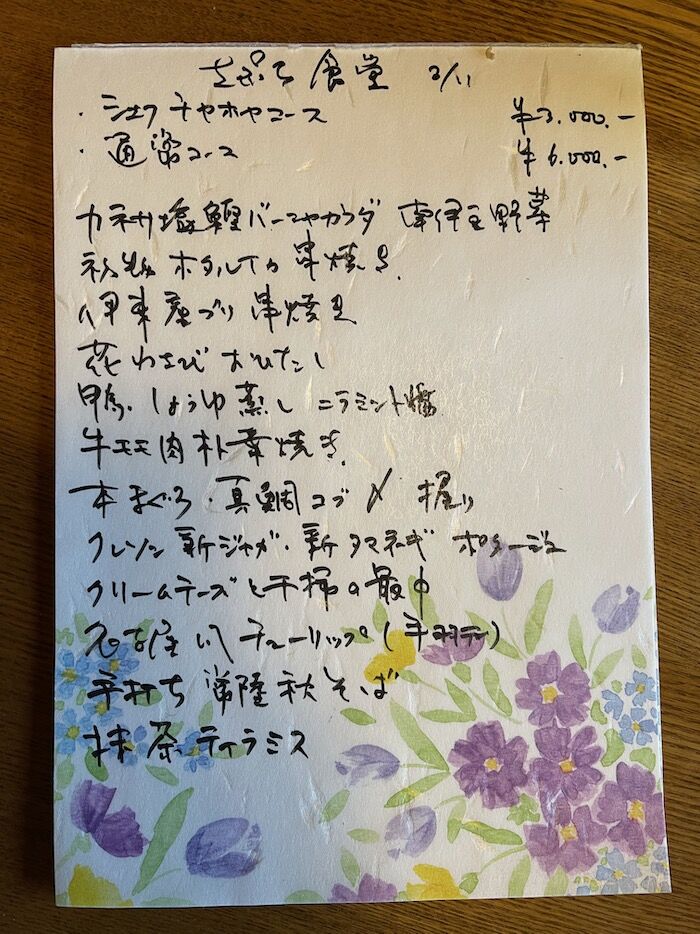 食堂 2/11
・シェフ チヤホヤコース ¥3.000.-
・通常コース ¥6.000.-
カネサ塩鰹バーニャカウダ 南伊豆野菜
ホタルイカ 串焼き
伊東産ブリ 串焼き
花わさび おひたし
鴨 しょうゆ蒸し ニラミント
牛モモ肉 朴葉焼き
本まぐろ・真鯛コブ〆 握り
クレソン 新ジャガ・新タマネギ ポタージュ
クリームチーズと干柿の最中
名古屋 チューリップ(手羽
手打ち 常陸秋そば
抹茶ティラミス